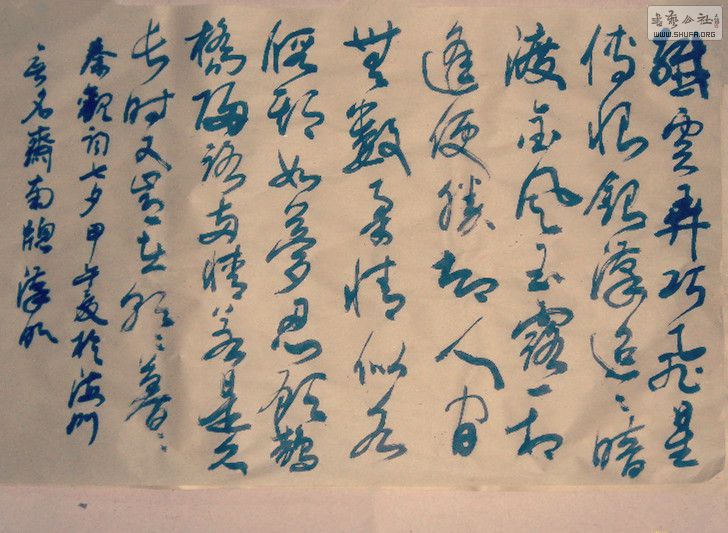 纖雲弄巧飛星
傳恨銀漢迢々暗
渡金風玉露一相
逢便勝却人間
無數柔情似水
佳期如夢忍顧鵲
橋歸路兩情若是久
長時又豈在朝々暮々
秦觀詞七夕甲午夏於海州
无名齋南牕漢
書藝公社
WWW.SHUFA.ORG